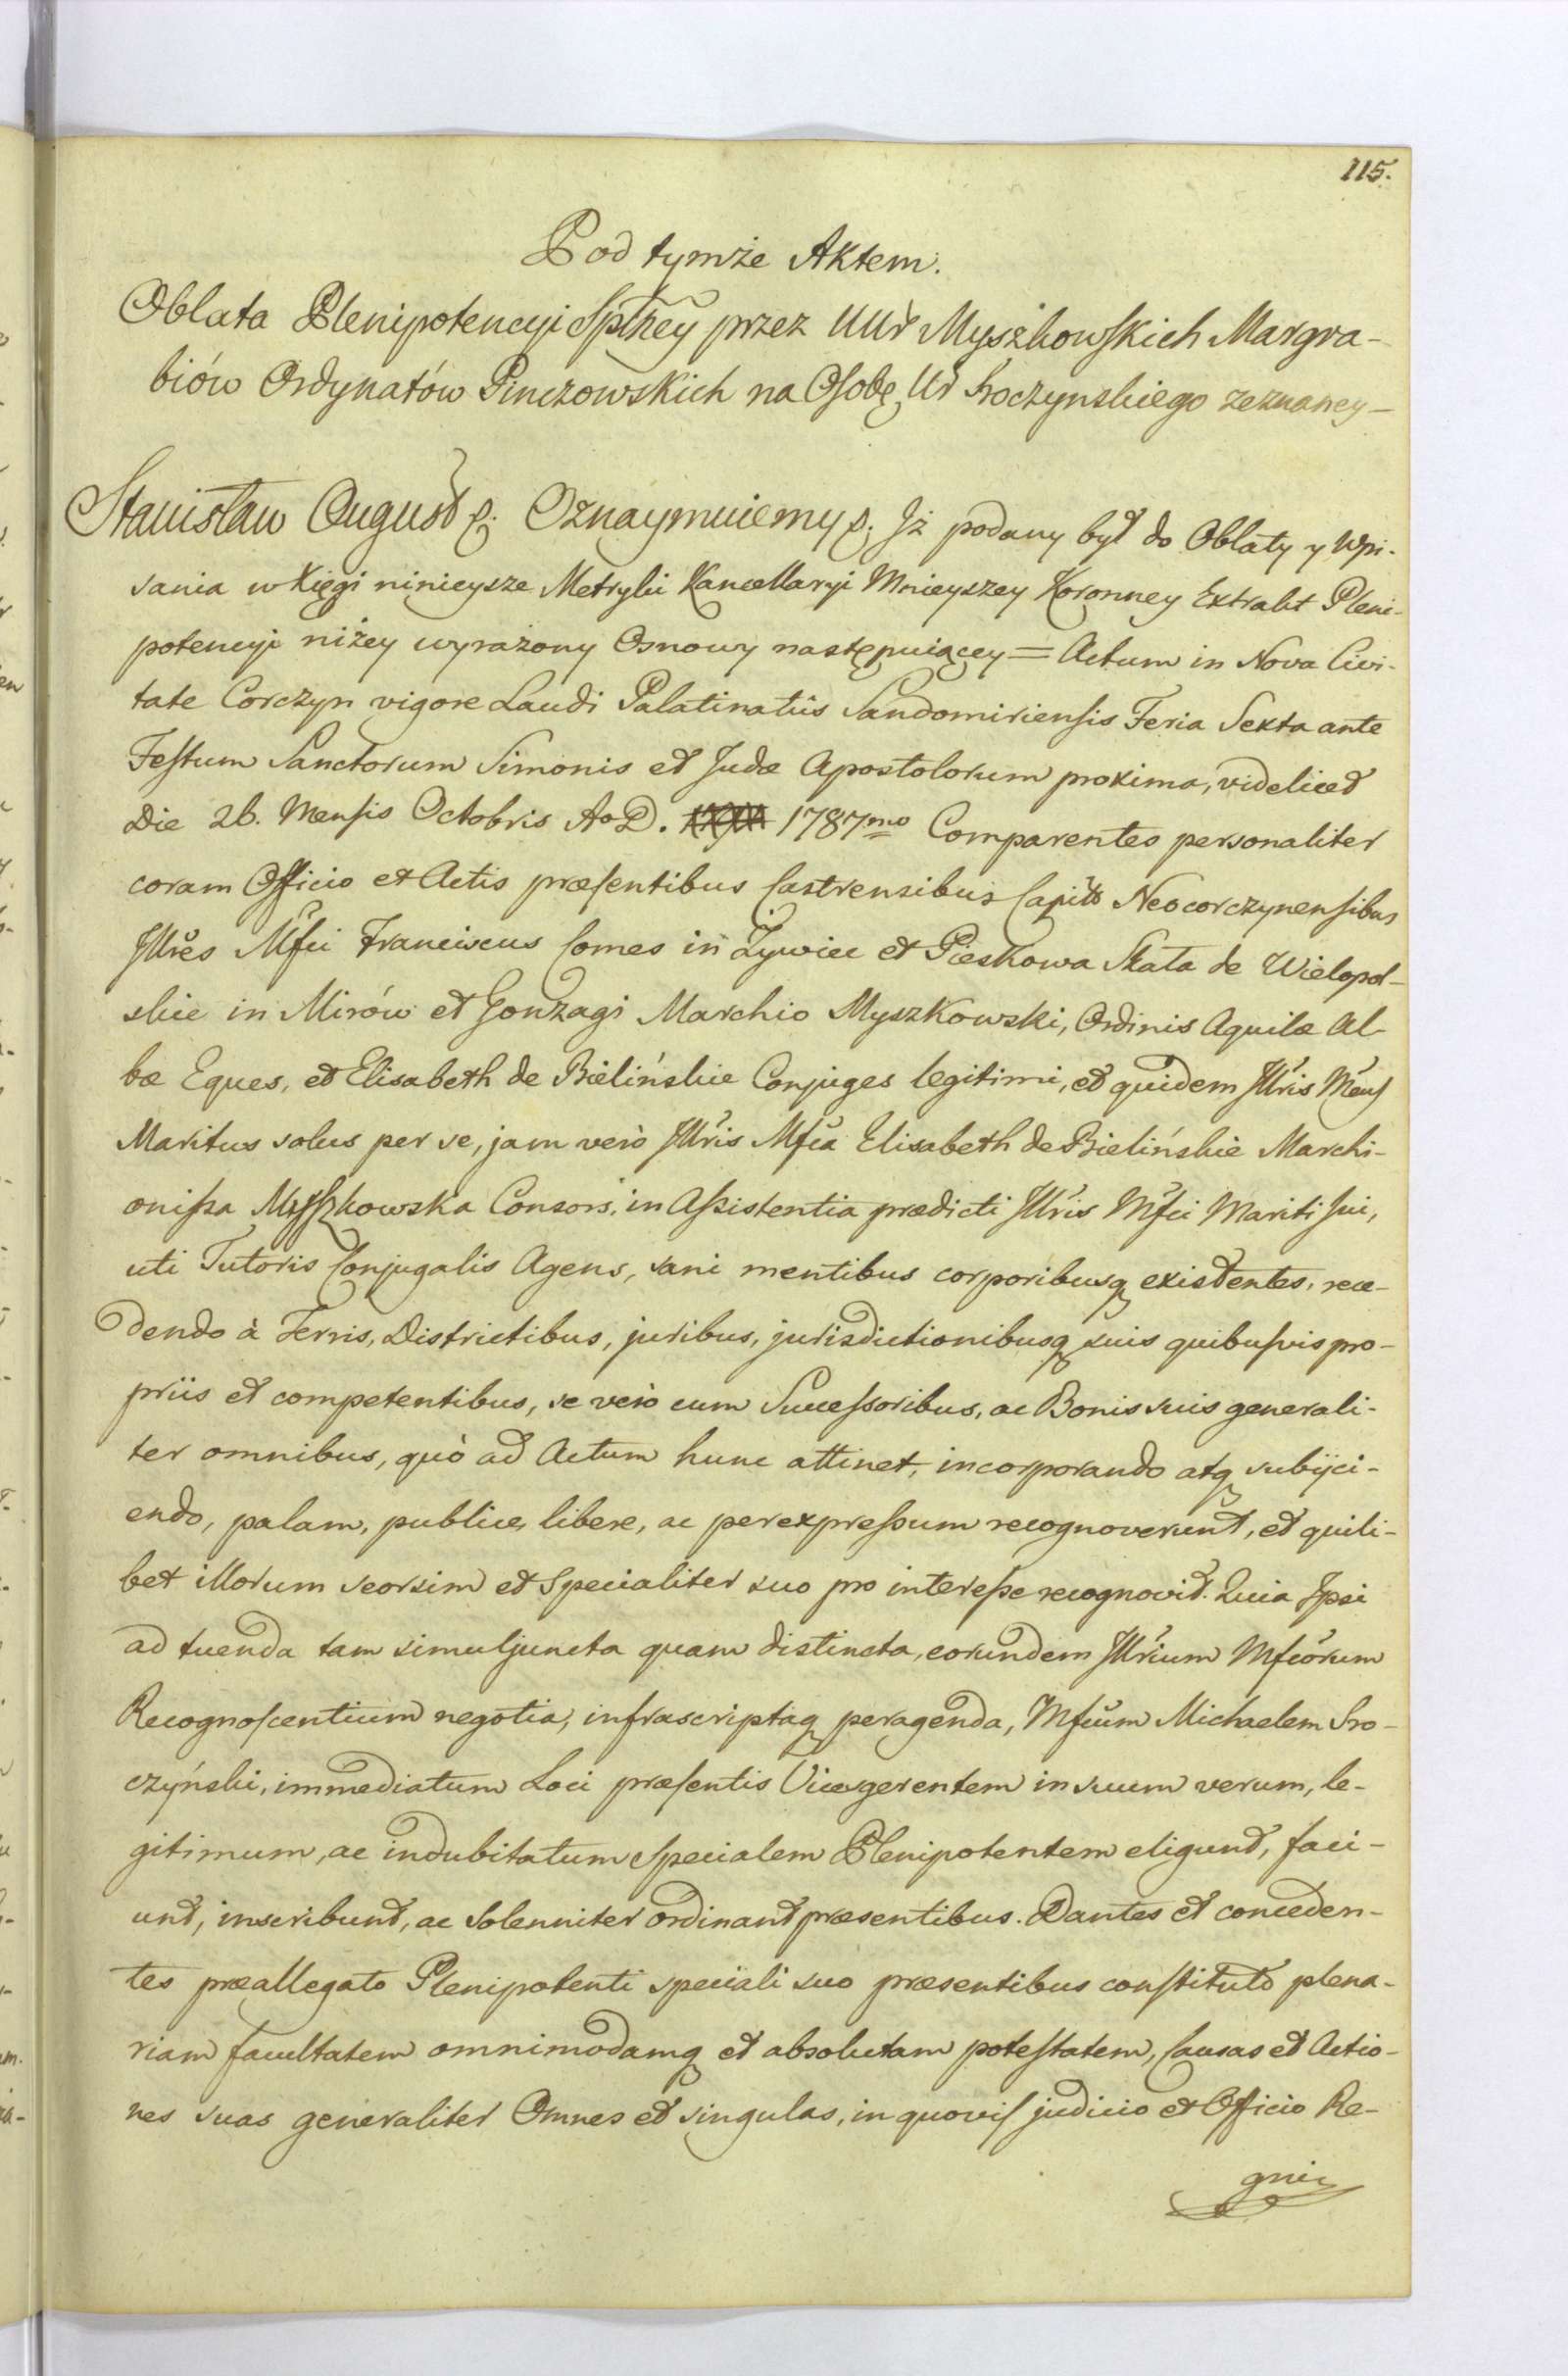 115.
Pod tymże Aktem.
Oblata Plenipotencyi Spłney przez UUr Myszkowskich Margra-
biów Ordynatów Pinczowskich na Osobę Ur Sroczynskiego zeznaney —
Stanisław August &. Oznaymuiemy &. Jż podany był do Oblaty y Wpi-
sania w Xięgi ninieysze Metryki Kancellaryi Mnieyszey Koronney Extrakt Pleni-
potencyi niżey wyrażony Osnowy następuiącey = Actum in Nova Civi-
tate Corczyn vigore Laudi Palatinatûs Sandomiriensis Feria Sexta ante
Festum Sanctorum Simonis et Judæ Apostolorum proxima, videlicet
Die 26. Mensis Octobris A.o D. 1787mo Comparentes personaliter
coram Officio et Actis præsentibus Castrensibus Capitt Neocorczynensibus
Jllrēs Mfci Franciscus Comes in Zywiec et Pieskowa Skała de Wielopol-
skie in Mirów et Gonzagi Marchio Myszkowski, Ordinis Aquilæ Al-
bæ Eques, et Elisabeth de Bielińskie Conjuges legitimi, et quidem Jllris Mcus
Maritus solus per se, jam verò Jllris Mfca Elisabeth de Bielińskie Marchi-
onissa Myszkowska Consors, in Assistentia prædicti Jllris Mfci Mariti sui,
uti Tutoris Conjugalis Agens, sani mentibus corporibusq existentes, rece-
dendo à Terris, Districtibus, juribus, jurisdictionibusq suis quibusvis pro-
priis et competentibus, se verò cum Successoribus, ac Bonis suis generali-
ter omnibus, quò ad Actum hunc attinet, incorporando atq subijci-
endo, palam, publice, libere, ac per expressum recognoverunt, et quili-
bet illorum seorsim et Specialiter suo pro interesse recognovit. Quia Jpsi
ad tuenda tam simul juncta quam distincta, eorundem Jllrium Mfcorum
Recognoscentium negotia, infrascriptaq peragenda, Mfcum Michaelem Sro-
czyński, immediatum Loci præsentis Vicesgerentem in suum verum, le-
gitimum, ac indubitatum specialem Plenipotentem eligunt, faci-
unt, inscribunt, ac Solenniter ordinant præsentibus. Dantes et conceden-
tes præallegato Plenipotenti speciali suo præsentibus constituto plena-
riam facultatem omnimodamq et absolutam potestatem, Causas et Actio-
nes suas generaliter Omnes et singulas, in quovis judicio et Officio Re-
gni